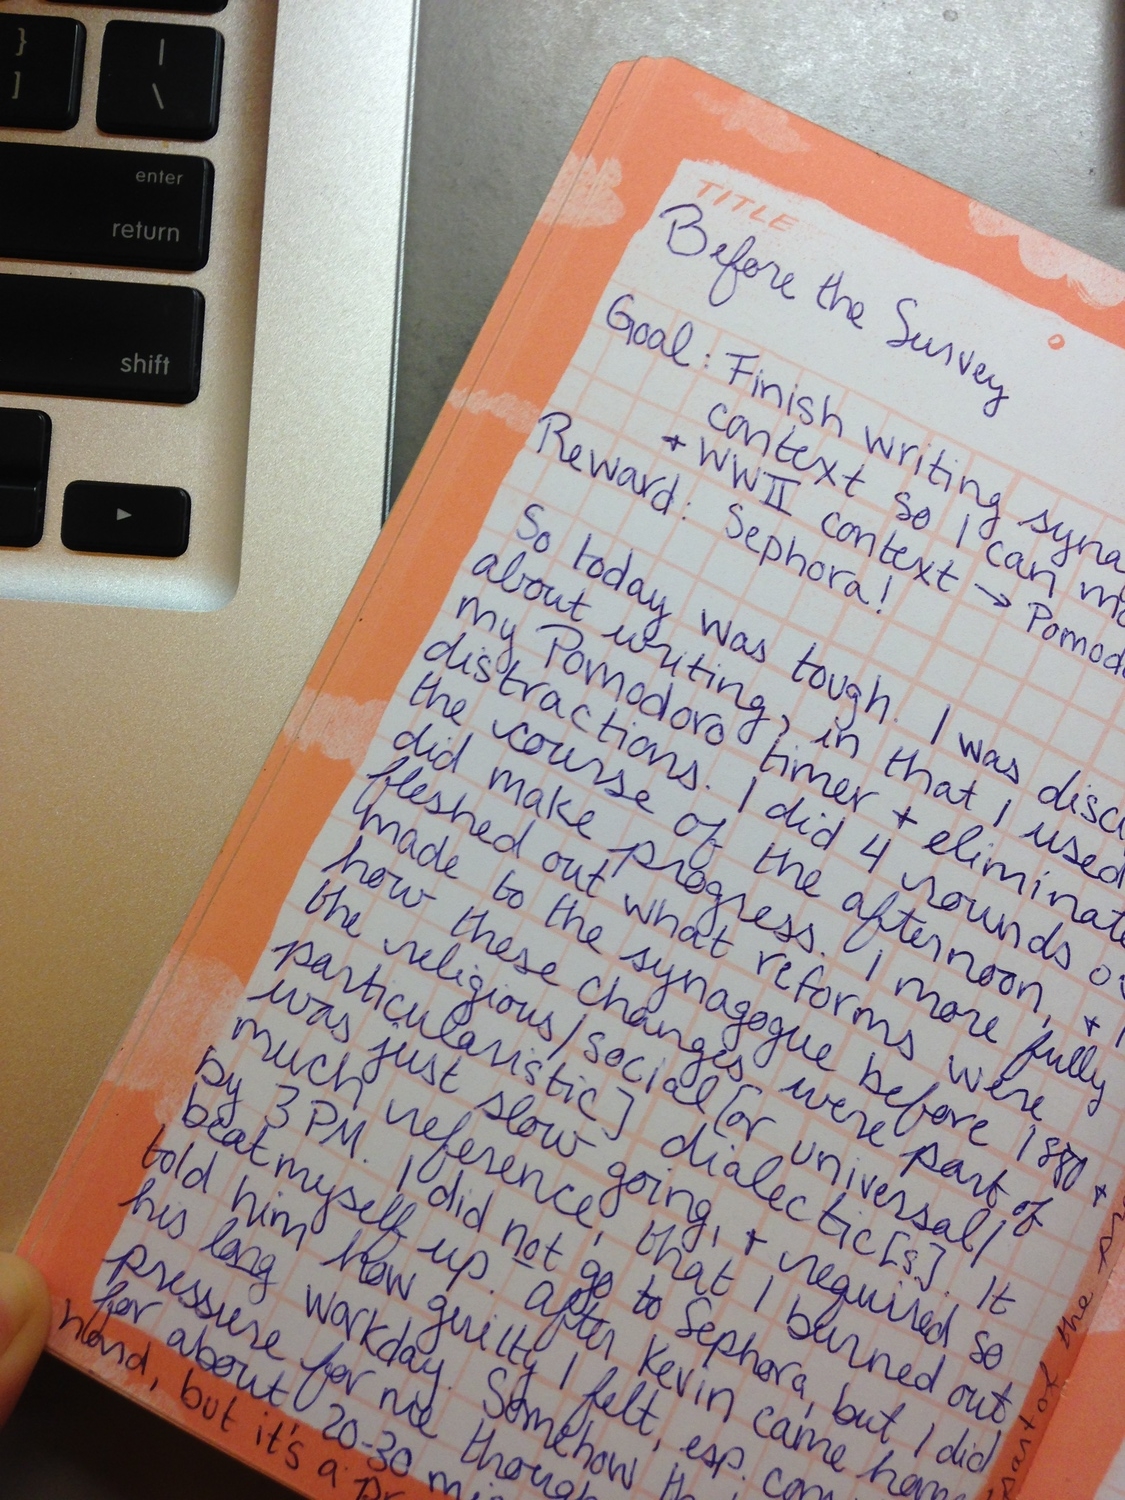 }
]
|
\
enter
return
shift
TITLE
Before the Survey
Goal: Finish writing syna
context so I can mo
+ WWII context → Pomod
Reward: Sephora!
So today was tough. I was disci
about writing, in that I used
my Pomodoro timer + eliminate
distractions. I did 4 rounds o
the course of the afternoon, + I
did make progress. I more fully
fleshed out what reforms were
made to the synagogue before 1880 +
how these changes were part of
the religious/social [or universal/
particularistic] dialectic[s]. It
was just slow going, + required so
much reference, that I burned out
by 3 PM. I did not go to Sephora, but I did
beat myself up. After Kevin came home,
told him how guilty I felt, esp. com
his long workday. Somehow th
pressure for me though
for about 20-30 mi
hard, but it's a pr
part of the pr